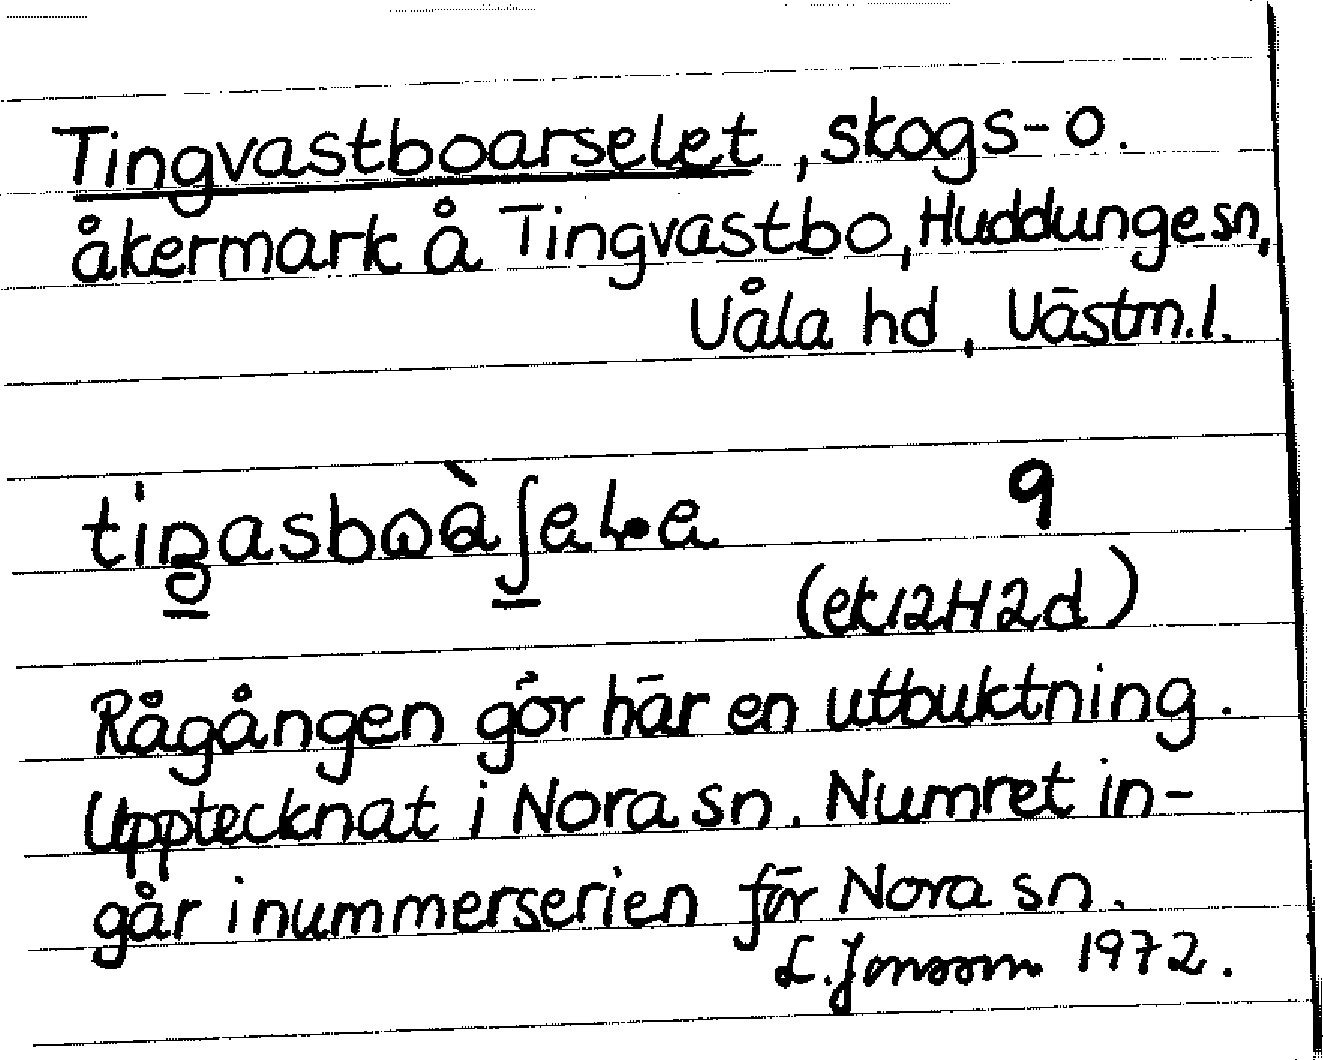 Tingvastboarselet, skogs- o.
åkermark å Tingvastbo, Huddunge sn,
Våla hd, Västm. l.
9
(ek 12H2d)
Rågången gör här en utbuktning.
Upptecknat i Nora sn. Numret in-
går i nummerserien för Nora sn.
L. Jonsson 1972.